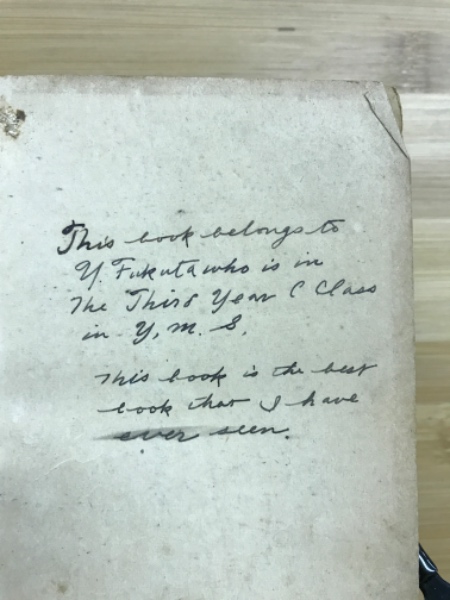 This book belongs to
Y. Fukuta who is in
The Third Year C Class
in Y, M. S.
This book is the best
book that I have
ever seen.